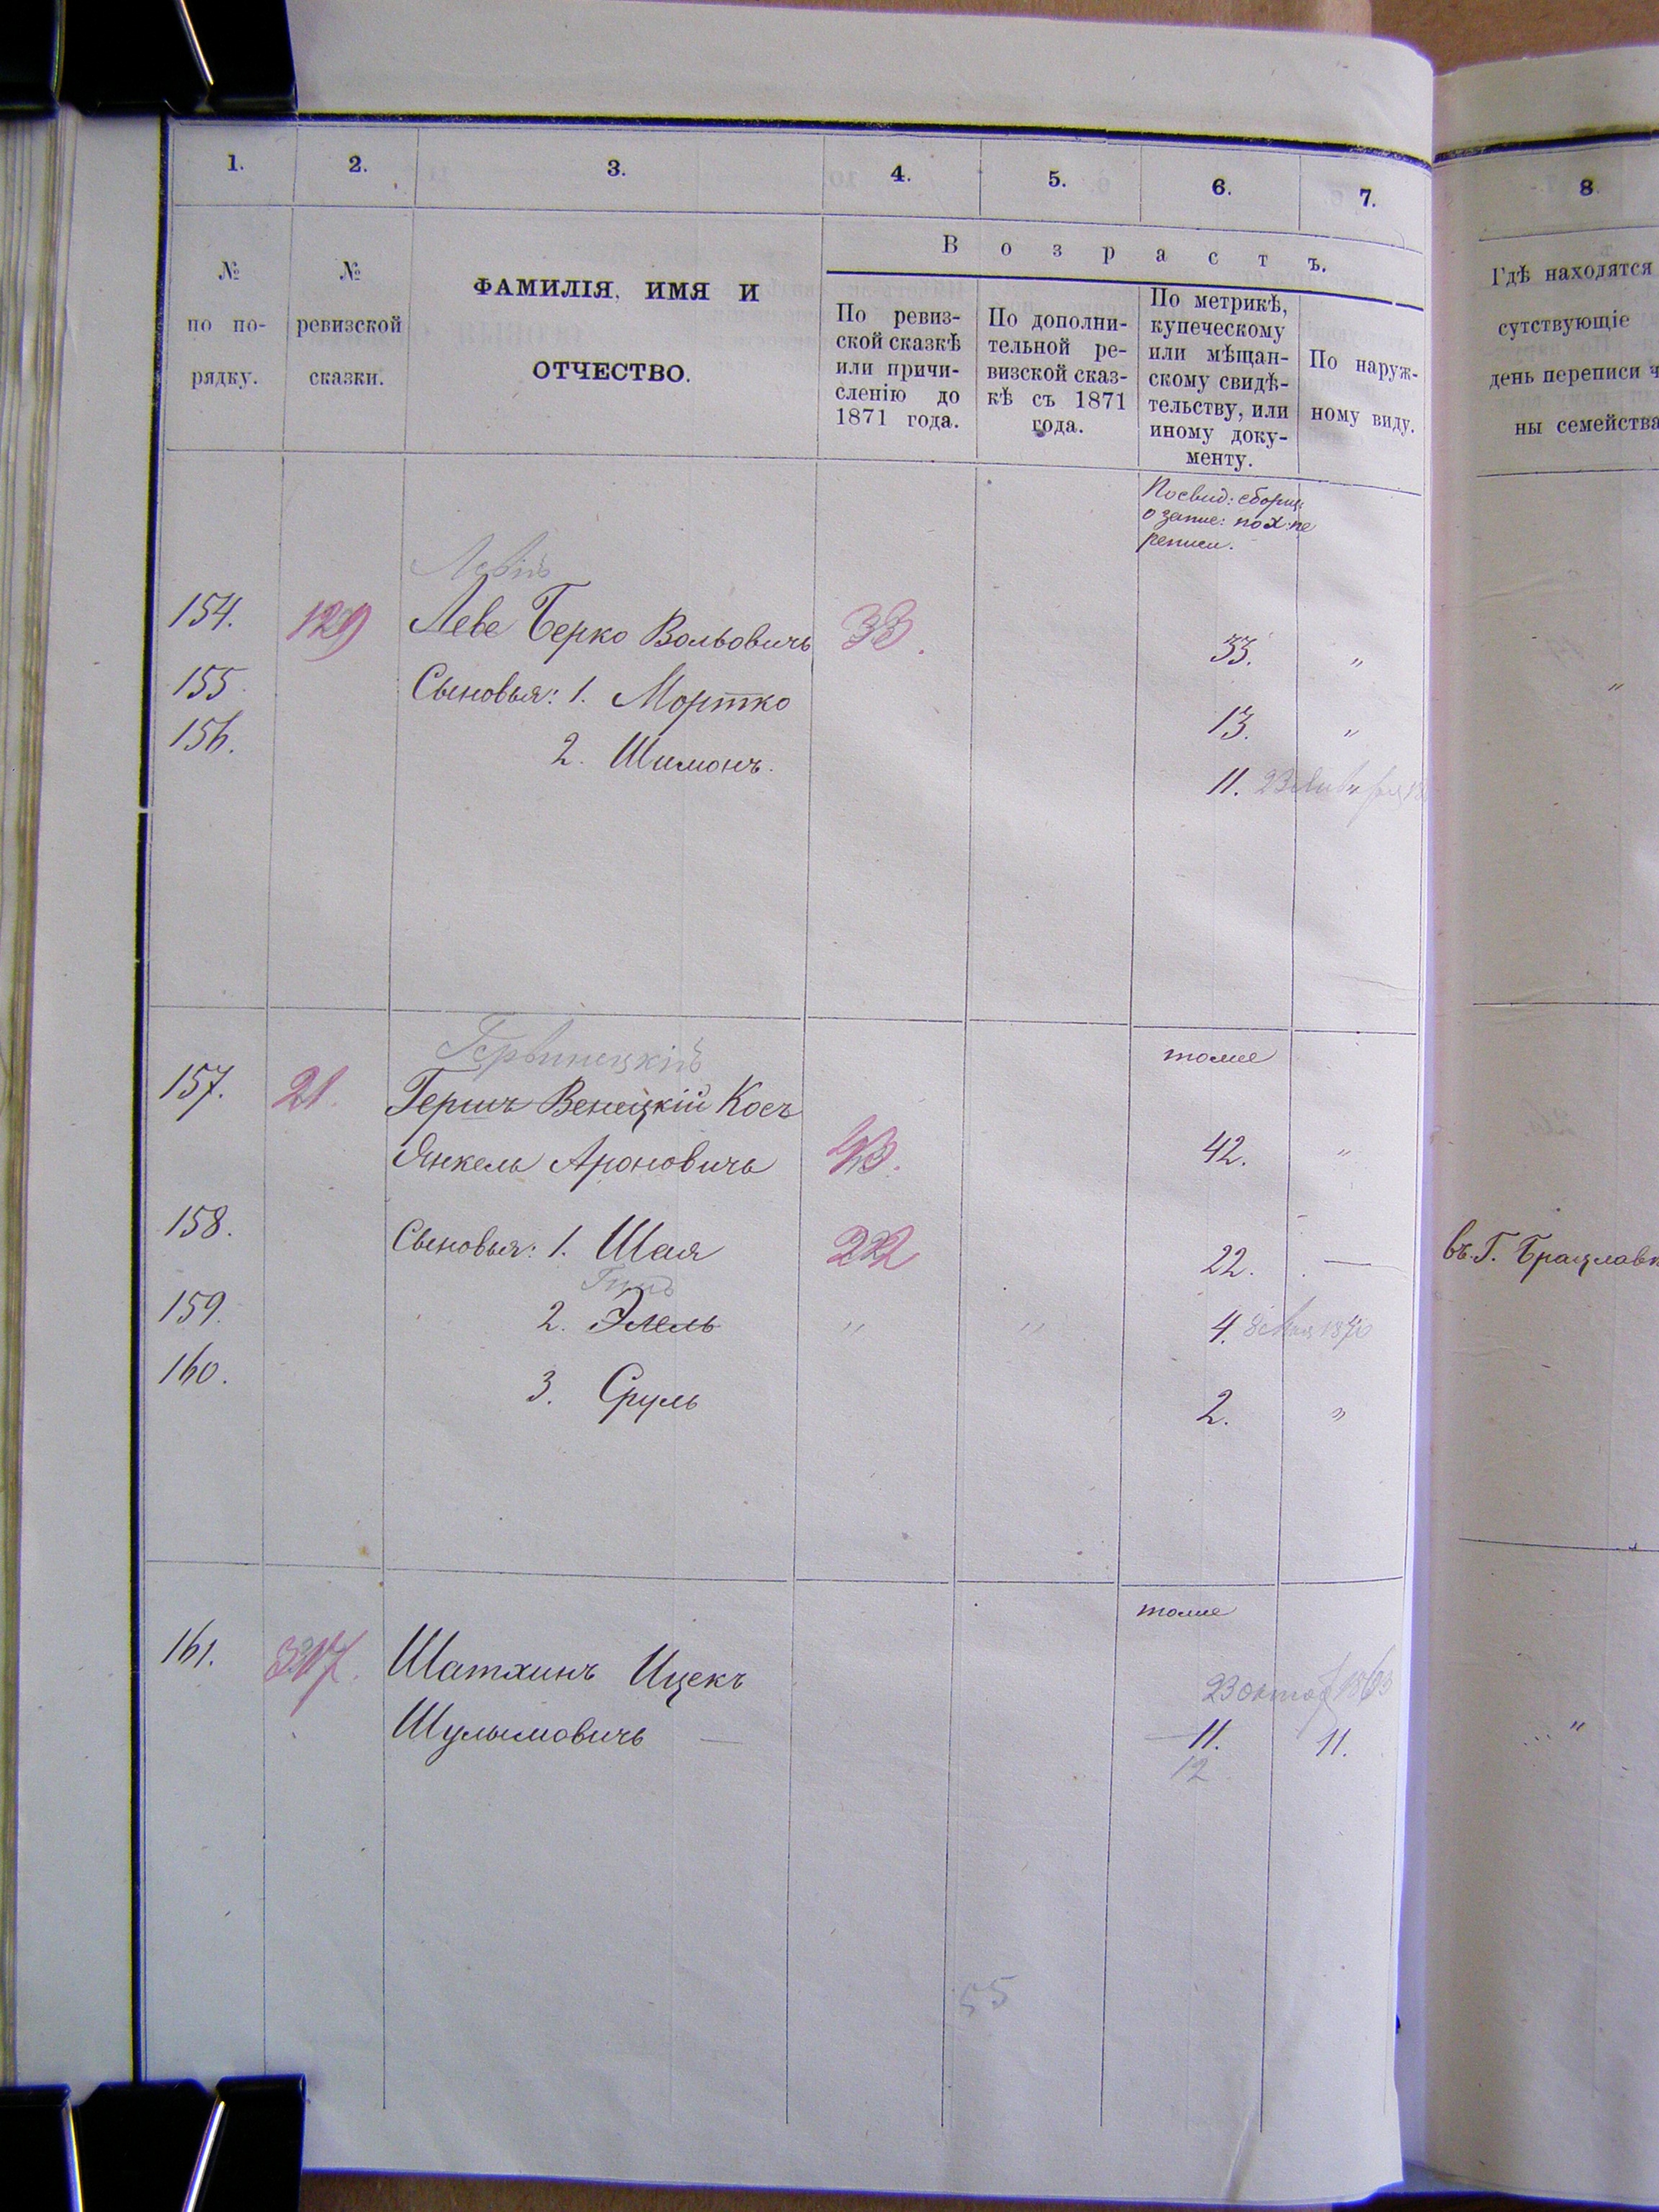 1. 2. 3. 4. 5. 6. 7. 8.
№ по по-рядку.
№ ревизской сказки.
ФАМИЛІЯ, ИМЯ И
ОТЧЕСТВО.
Возрастъ.
По ревиз-
ской сказкѣ
или причи-
сленію до
1871 года.
По дополни-
тельной ре-
визской сказ-
кѣ съ 1871
года.
По метрикѣ,
купеческому
или мѣщан-
скому свидѣ-
тельству, или
иному доку-
менту.
По наруж-
ному виду.
Гдѣ находятся
сутствующіе
день переписи ч
ны семейства
По свид: сборщ:
о запис: по X пе
реписи.
Левій
154. 129 Леве Берко Вольовичъ 33. 33. "
155. Сыновья: 1. Мортко 13. " "
156. 2. Шимонъ. 11.
Гервинецкій
тоже
157. 21. Гершъ Венецкій Косъ
Янкель Ароновичъ 43. 42. "
158. Сыновья: 1. Шая 222 22. — въ Г. Брацлавѣ
159. 2. Элель " " 4. 8 Мая 1870
160. 3. Сруль 2. "
тоже
161. 317. Шатхинъ Ицекъ 23 октяб 1863
Шулимовичъ — 11. 11. "
12
55